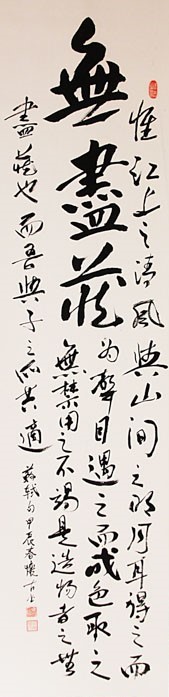 無盡藏
惟江上之清風與山間之明月耳得之而
為聲目遇之而成色取之
無禁用之不竭是造物者之無
盡藏也而吾與子之所共適
蘇軾句甲辰春